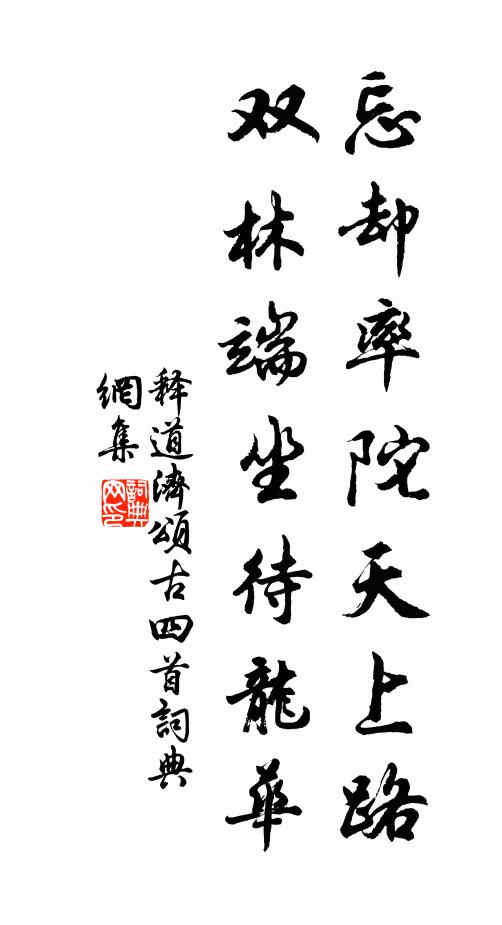 忘却率陀天上路
双林端坐待龍華
释道濟頌古四首詞典
網集
詞典网印